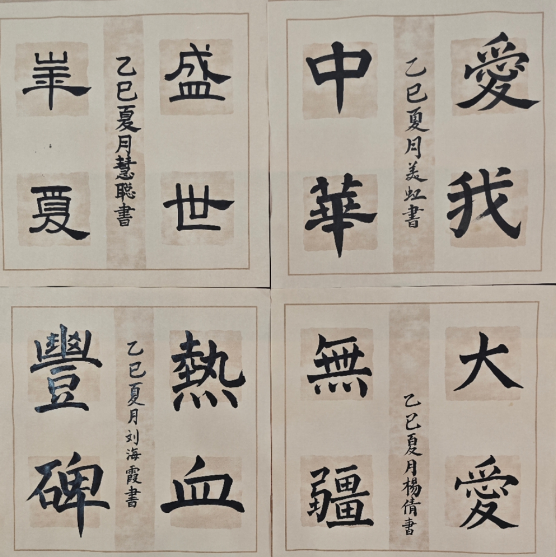 愛我
乙巳夏月美虹書
中華
盛世
乙巳夏月慧聪書
華夏
大愛
乙巳夏月楊倩書
無疆
熱血
乙巳夏月刘海霞書
豐碑